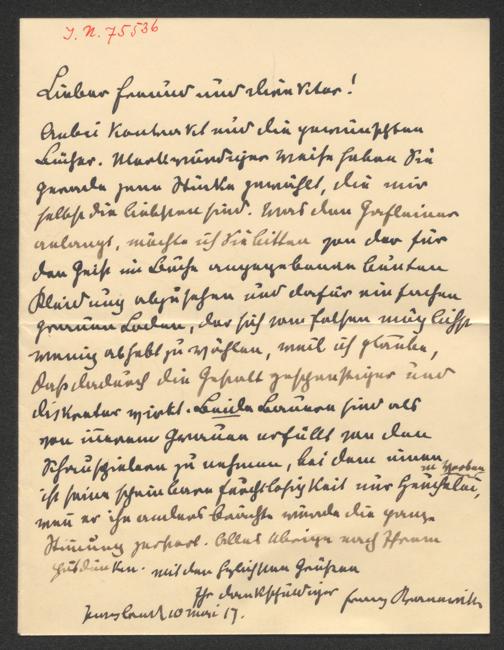 J. N. 75536
Lieber Freund und Direktor!
Anbei Kontrakt und die gewünschten
Bücher. Merkwürdiger Weise haben Sie
gerade jene Stücke gewählt, die mir
selbst die liebsten sind. Was den
anlangt, möchte ich Sie bitten von der für
den Geist im Buche angegebenen bunten
Kleidung abzusehen und dafür einfachen
grauen Loden, der sich vom Felsen möglichst
wenig abhebt zu wählen, weil ich glaube,
daß dadurch die Gestalt gespenstiger und
diskreter wirkt. Beide Bauern sind als
von innerem Grauen erfüllt von den
Schauspielern zu nehmen, bei dem einen
ist seine scheinbare Furchtlosigkeit nur Heuchelei,
wenn er sie anders brächte würde die ganze
Stimmung zerstört. Alles Übrige nach Ihrem
Gutdünken. Mit den herzlichsten Grüßen
Ihr dankschuldiger Franz Kranewitter
Innsbruck 10 Mai 17.